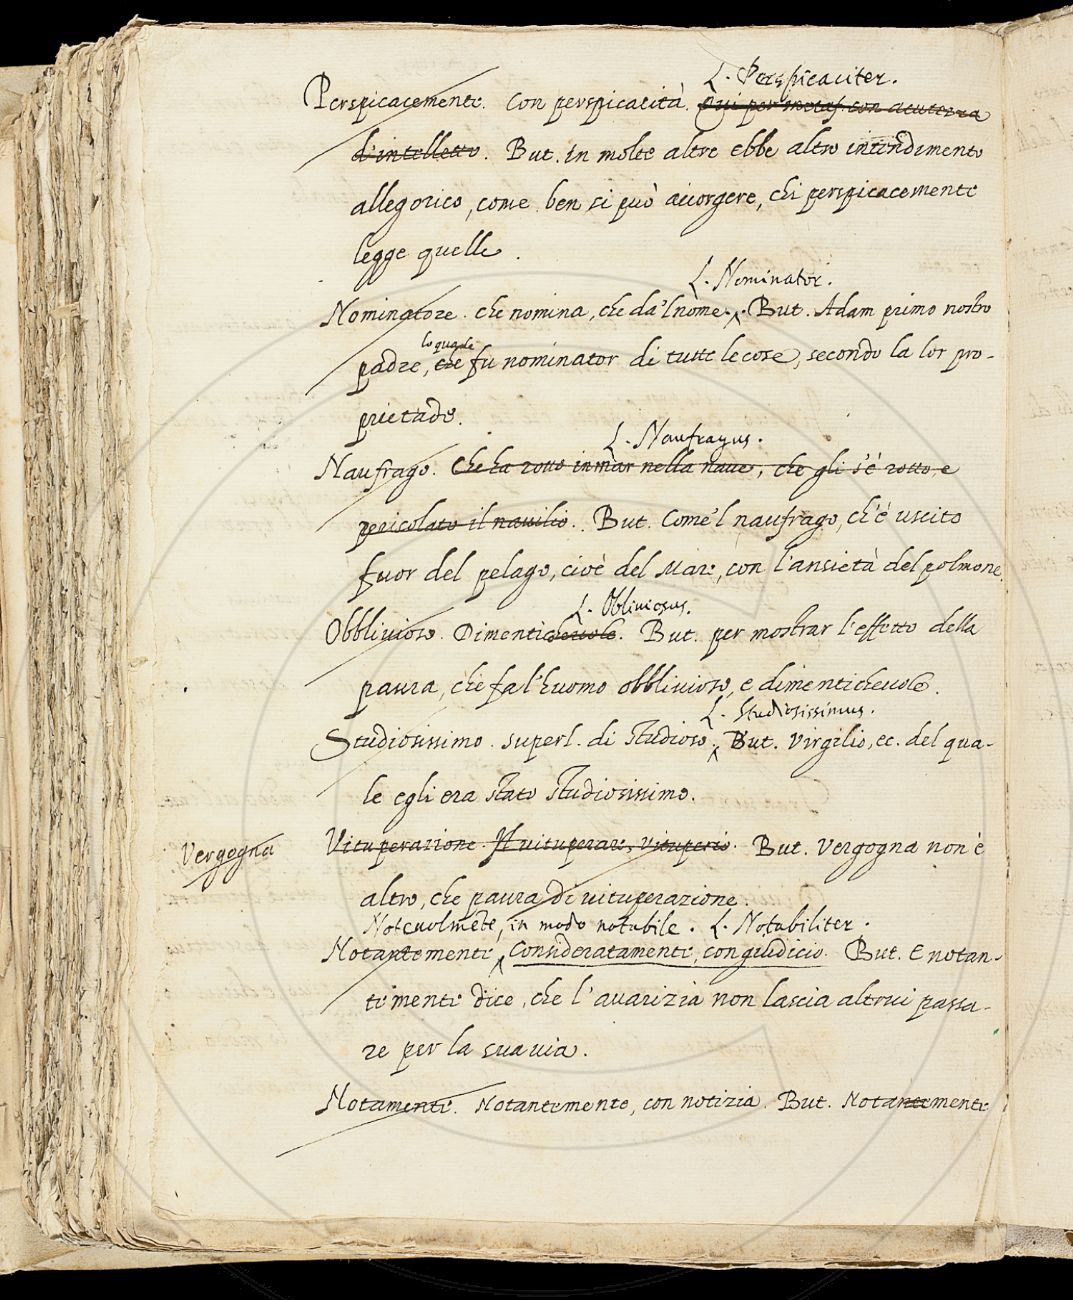 L. Perspicaciter.
Perspicacemente. Con perspicacità. Qui per metaf. con acutezza
d'intelletto. But. in molte altre ebbe altro intendimento
allegorico, come ben si può accorgere, chi perspicacemente
legge quelle.
L. Nominator.
Nominatore. che nomina, che da'l nome. But. Adam primo nostro
lo quale
padre, che fu nominator di tutte le cose, secondo la lor pro-
prietade.
L. Naufragus.
Naufrago. Che ha rotto in mar nella naue, che gli s'è rotto, e
pericolato il nauilio. But. Come'l naufrago, ch'è uscito
fuor del pelago, cioè del Mare, con l'ansietà del polmone.
L. Obliuiosus.
Obbliuioso. Dimenticheuole. But. per mostrar l'effetto della
paura, che fa l'huomo obbliuioso, e dimenticheuole.
L. Studiosissimus.
Studiosissimo. superl. di Studioso. But. Virgilio, ec. del qua-
le egli era stato studiosissimo.
Vergogna
Vituperazione. Il uituperare, uituperio. But. Vergogna non è
altro, che paura di uituperazione.
Noteuolmēte, in modo notabile. L. Notabiliter.
Notantemente, Consideratamente, con giudicio. But. E notan-
temente dice, che l'auarizia non lascia altrui passa-
re per la sua uia.
Notamente. Notantemente, con notizia. But. Notantemente